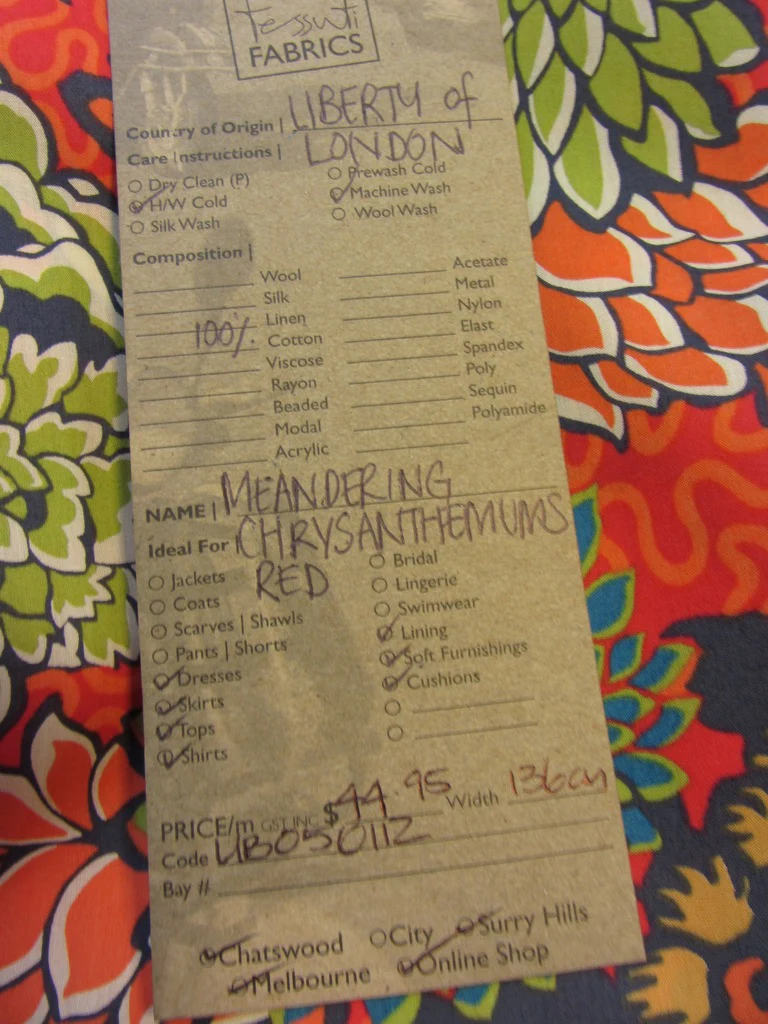 tessuti
FABRICS
Country of Origin | LIBERTY of
Care Instructions | LONDON
Dry Clean (P) Prewash Cold
H/W Cold Machine Wash
Silk Wash Wool Wash
Composition |
Wool Acetate
Silk Metal
Linen Nylon
100% Cotton Elast
Viscose Spandex
Rayon Poly
Beaded Sequin
Modal Polyamide
Acrylic
NAME | MEANDERING
Ideal For | CHRYSANTHEMUMS
RED
Jackets Bridal
Coats Lingerie
Scarves | Shawls Swimwear
Pants | Shorts Lining
Dresses Soft Furnishings
Skirts Cushions
Tops
Shirts
PRICE/m GST INC $44.95 Width 136cm
Code LIB050112
Bay #
Chatswood City Surry Hills
Melbourne Online Shop